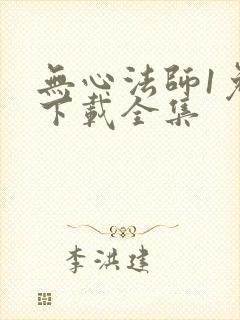 無心法師1
下載全集
李洪建